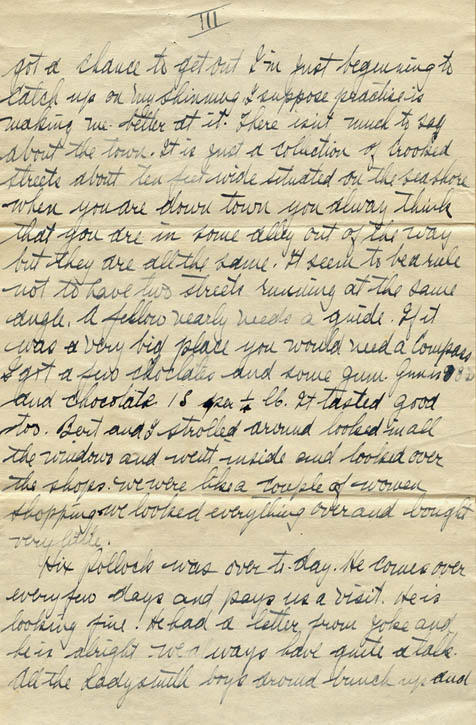 III
got a chance to get out I'm just beginning to
catch up on my shinning I suppose practise is
making me better at it. There isn't much to say
about the town. It is just a colection of crooked
streets about ten feet wide situated on the seashore
when you are down town you alway think
that you are in some alley out of the way
but they are all the same. It seem to be a rule
not to have two streets running at the same
angle. A fellow nearly needs a guide. If it
was a very big place you would need a compass
I got a few choclates and some gum. Gum is
and chocolate 1s per ¼ lb. It tasted good
too. Bert and I strolled around looked in all
the windows and went inside and looked over
the shops. we were like a couple of women
shopping we looked everything over and bought
very little.
Hix Pollock was over to-day. He comes over
every few days and pays us a visit. he is
looking fine. He had a letter from Jobe and
he is alright we always have quite a talk.
All the Ladysmith boys around bunch up and